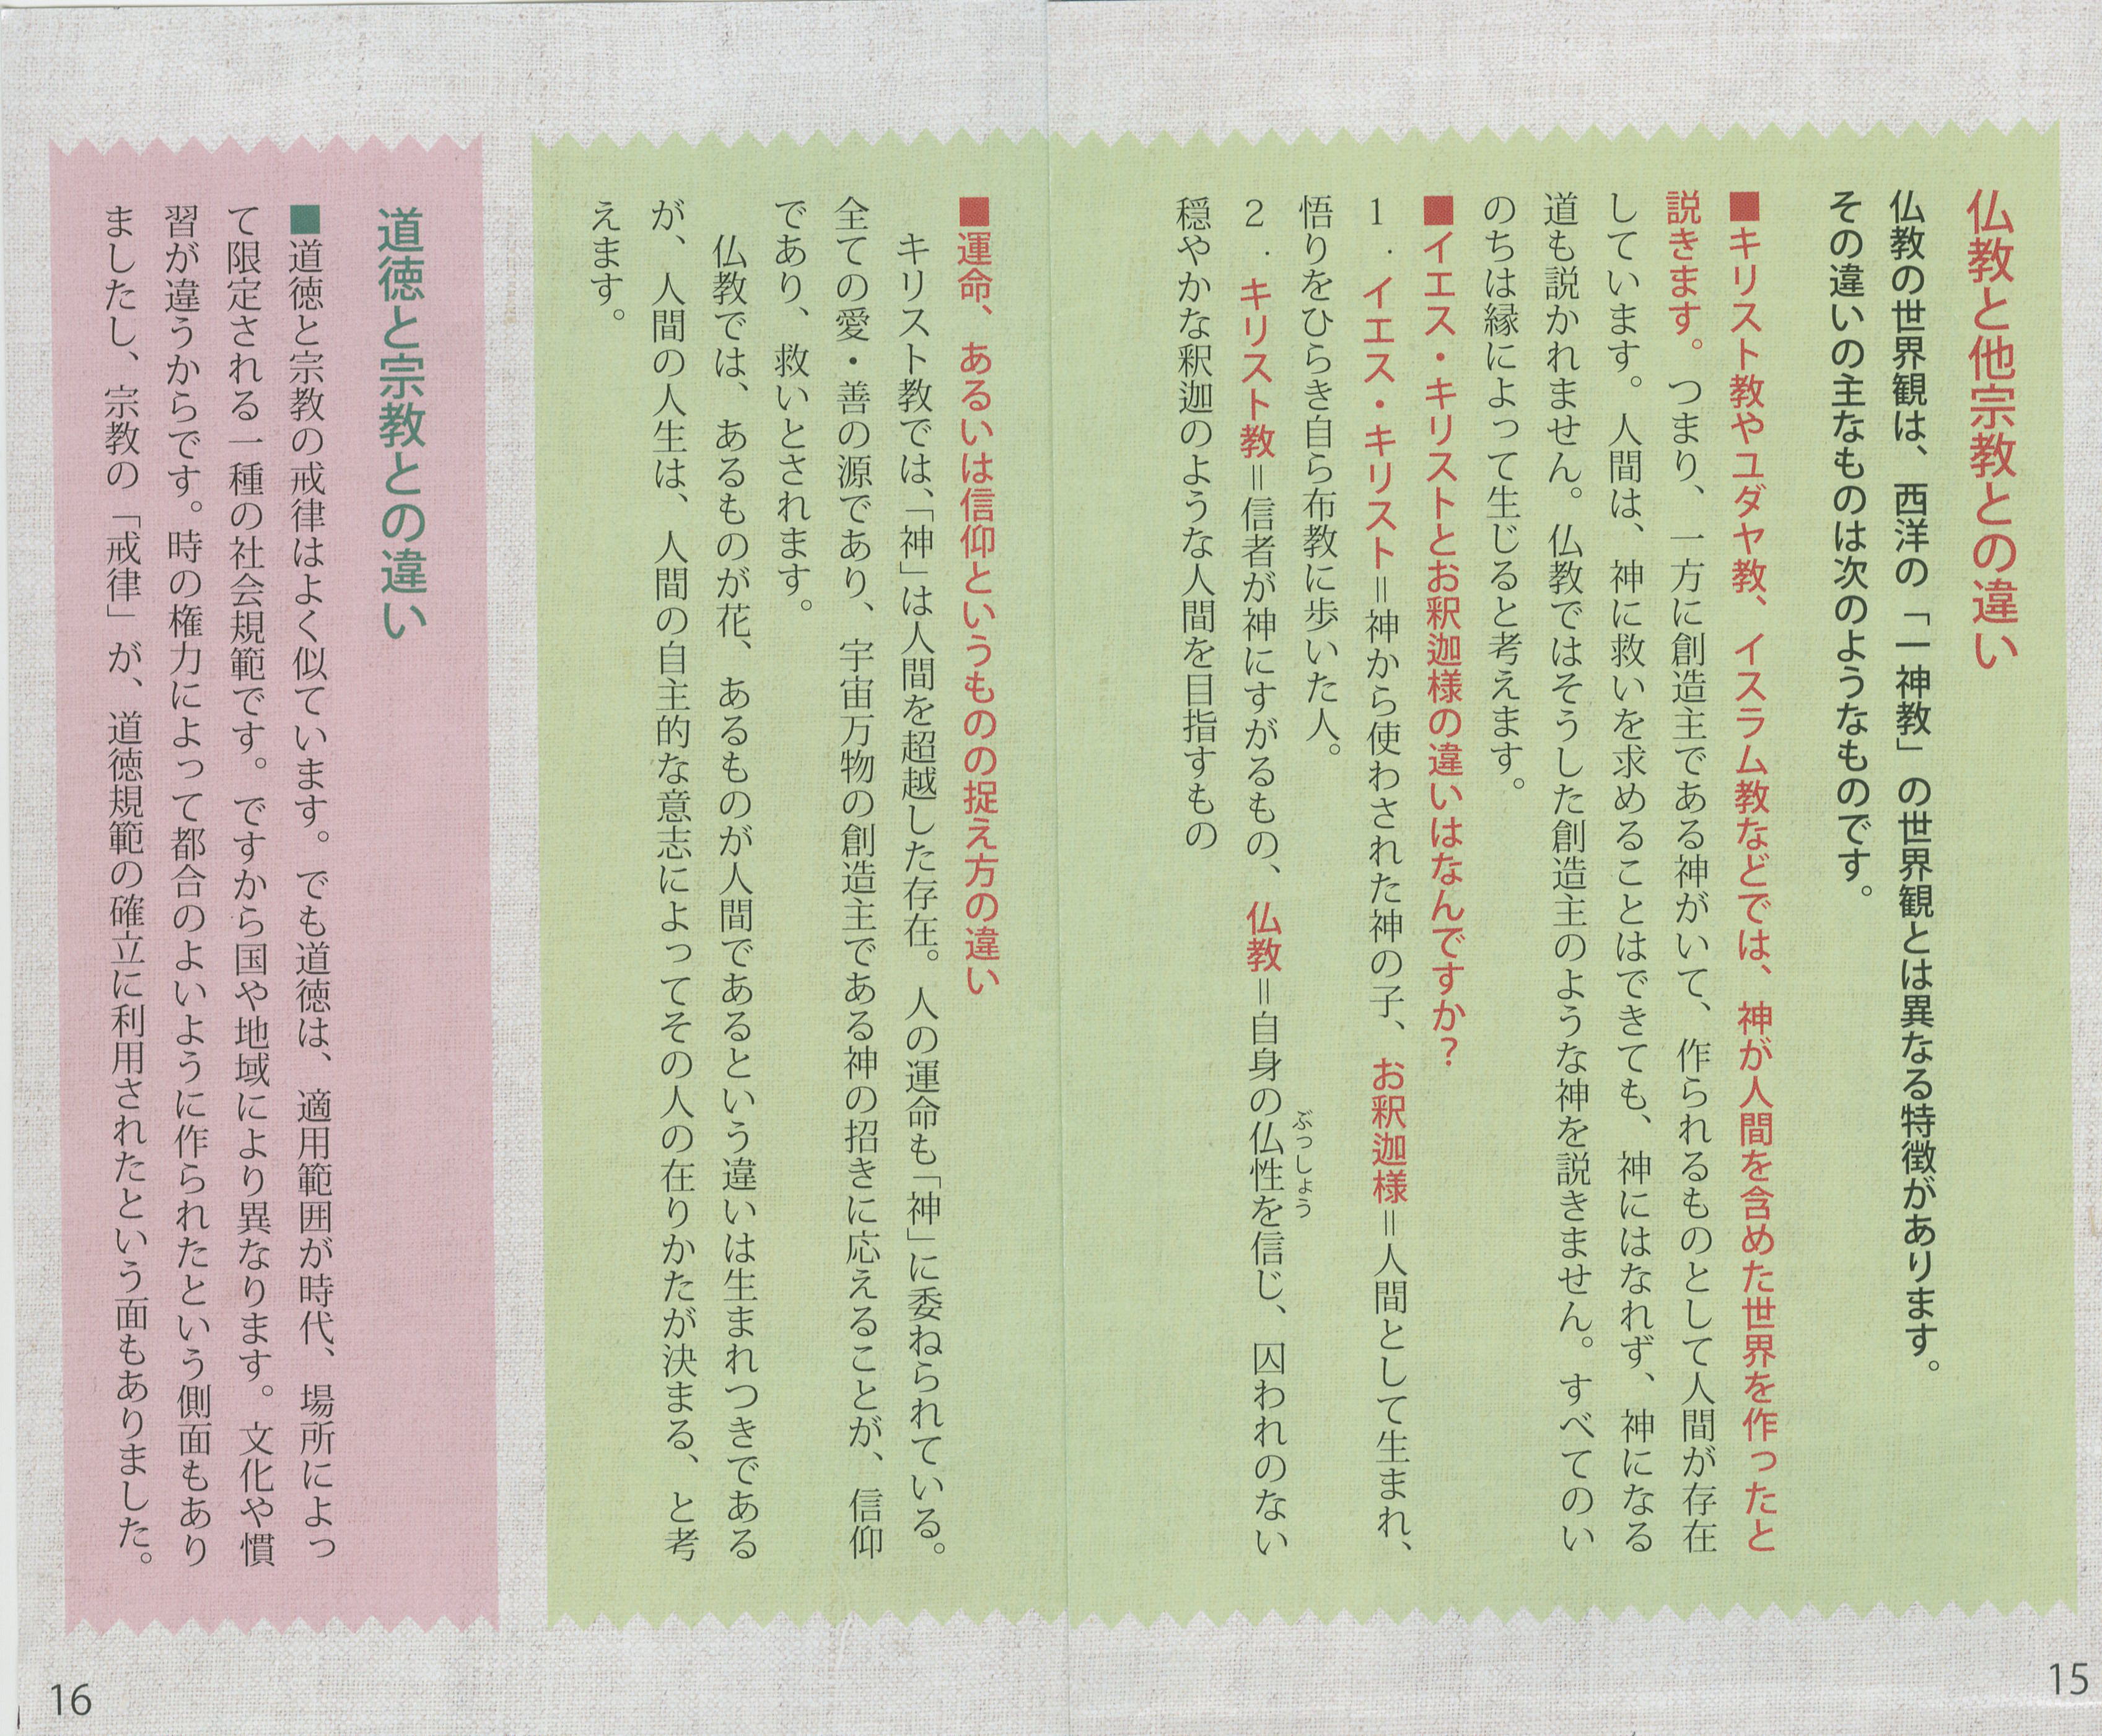 仏教と他宗教との違い
仏教の世界観は、西洋の「一神教」の世界観とは異なる特徴があります。
その違いの主なものは次のようなものです。
■キリスト教やユダヤ教、イスラム教などでは、神が人間を含めた世界を作ったと
説きます。つまり、一方に創造主である神がいて、作られるものとして人間が存在
しています。人間は、神に救いを求めることはできても、神にはなれず、神になる
道も説かれません。仏教ではそうした創造主のような神を説きません。すべてのい
のちは縁によって生じると考えます。
■イエス・キリストとお釈迦様の違いはなんですか？
1．イエス・キリスト＝神から使わされた神の子、お釈迦様＝人間として生まれ、
悟りをひらき自ら布教に歩いた人。
2．キリスト教＝信者が神にすがるもの、仏教＝自身の仏性を信じ、囚われのない
ぶっしょう
穏やかな釈迦のような人間を目指すもの
■運命、あるいは信仰というものの捉え方の違い
キリスト教では、「神」は人間を超越した存在。人の運命も「神」に委ねられている。
全ての愛・善の源であり、宇宙万物の創造主である神の招きに応えることが、信仰
であり、救いとされます。
仏教では、あるものが花、あるものが人間であるという違いは生まれつきである
が、人間の人生は、人間の自主的な意志によってその人の在りかたが決まる、と考
えます。
道徳と宗教との違い
■道徳と宗教の戒律はよく似ています。でも道徳は、適用範囲が時代、場所によっ
て限定される一種の社会規範です。ですから国や地域により異なります。文化や慣
習が違うからです。時の権力によって都合のよいように作られたという側面もあり
ましたし、宗教の「戒律」が、道徳規範の確立に利用されたという面もありました。
15
16